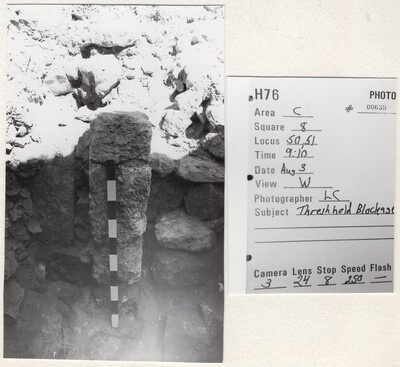 H76 PHOTO
Area C # 00635
Square 8
Locus 50,51
Time 9:10
Date Aug 3
View W
Photographer LC
Subject Threshhold Blockage
Camera Lens Stop Speed Flash
3 24 8 250 —